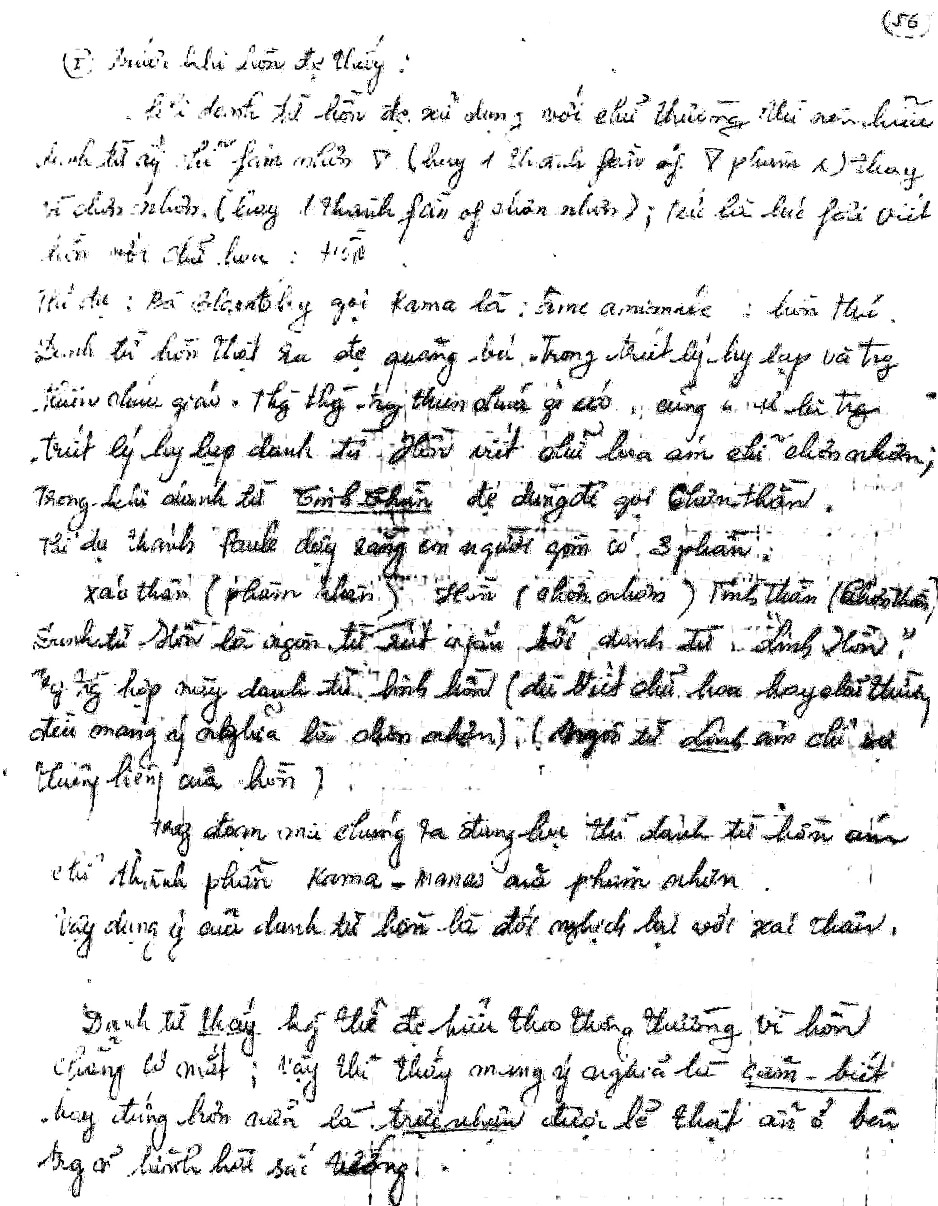 (56)
(I) Trước khi hồn đc thấy :
Khi danh từ hồn đc sử dụng với chữ thường thì nên hiểu
danh từ ấy chỉ fàm nhơn (hay 1 thành fần of phàm x) thay
vì chơn nhơn. (hay 1 thành fần of chơn nhơn) ; trừ là lúc fải viết
hồn với chữ hoa : Hồn
Thí dụ : Bà Blavatsky gọi Kama là : âme animale : hồn thú.
Danh từ hồn thật ra đc quảng bá trong triết lý hy lạp và trg
thiên chúa giáo. thiên chúa cũng là trg
triết lý hy lạp danh từ Hồn viết chữ hoa ám chỉ chơn nhơn ;
Trong khi danh từ Tinh thần đc dùng để gọi Chơn thần.
Thí dụ thánh Paule dạy rằng con người gồm có 3 phần :
xác thân (phàm nhơn) Hồn (chơn nhơn) Tinh thần (Chơn thần)
Danh từ Hồn là ngôn từ rút ngắn bởi danh từ "Linh Hồn".
Trg hợp này danh từ linh hồn (dù viết chữ hoa hay chữ thường
đều mang ý nghĩa là chơn nhơn). (Ngôn từ linh ám chỉ sự
thiêng liêng của hồn)
Trong đoạn mà chúng ta đang học thì danh từ hồn ám
chỉ thành phần Kama - Manas của phàm nhơn.
Vậy dụng ý của danh từ hồn là đối nghịch lại với xác thân.
Danh từ thấy kg thể đc hiểu theo thông thường vì hồn
chẳng có mắt ; vậy thì thấy mang ý nghĩa là cảm - biết
hay đúng hơn nữa là trực nhận được lẽ thật ẩn ở bên
trg hình sắc tướng.